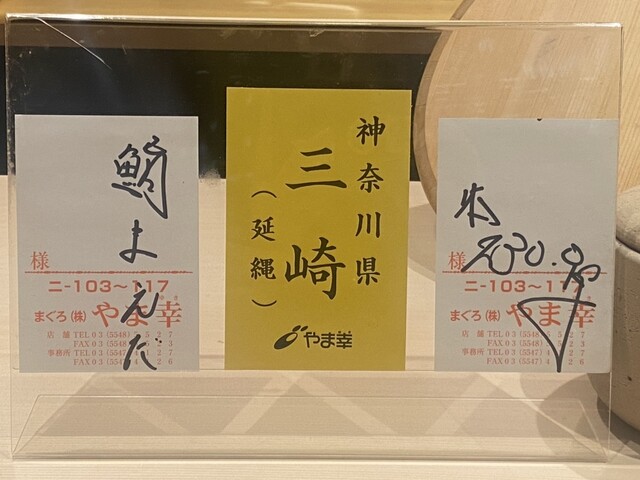 鮨
まえだ
様
ニ-103〜117
まぐろ(株)やま幸
店舗 TEL 03(5548)
FAX 03(5548)
事務所 TEL 03(5547)
FAX 03(5547)
神奈川県
三崎
(延縄)
やま幸
様
ニ-103〜117
まぐろ(株)やま幸
店舗 TEL 03(5548)
FAX 03(5548)
事務所 TEL 03(5547)
FAX 03(5547)